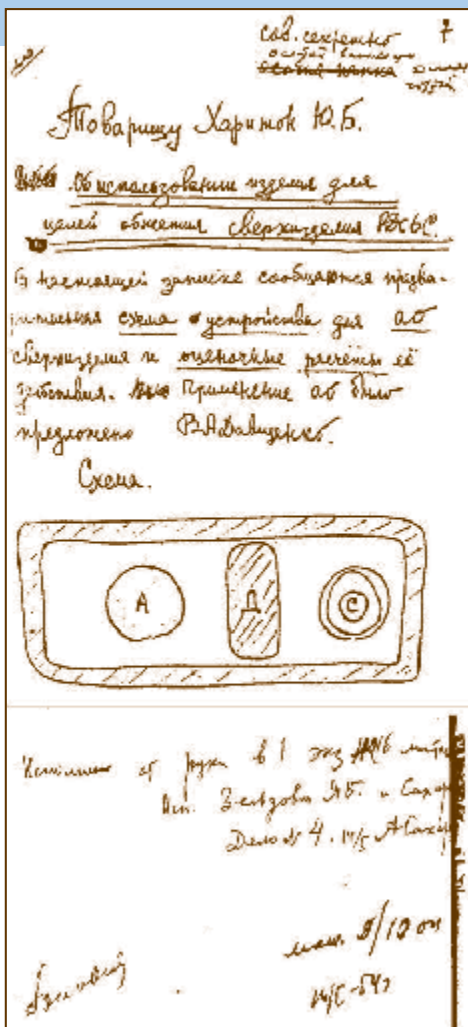 7
сов. секретно
особой важности
Товарищу Харитон Ю.Б.
Об использовании изделия для
целей обжатия сверхизделия РДС-6с.
В настоящей записке сообщаются предва-
рительная схема устройства для АО
сверхизделия и оценочные расчёты её
действия. Применение АО было
предложено В.А.Давиденко.
Схема.
А Д С
Исполнено от руки в 1 экз на
Исп. Зельдович Я.Б. и Сахар
Дело № 4. 14/I А Сахар
14/I-54г